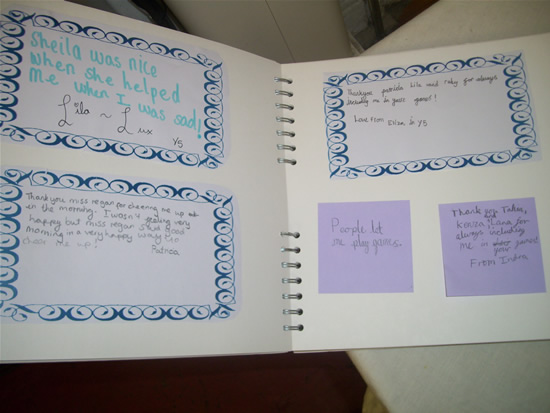 Sheila was nice
when she helped
me when I was sad!
Lila ~ Lux
Y5
Thank you miss regan for cheering me up
in the morning. I wasn't feeling very
happy but miss regan said good
morning in a very happy way to
cheer me up!
Thankyou
lila and ruby for always
including me in your games!
Love from
in Y5
People let
me play games.
Thank you
Kenza, Lana for
always including
me in your games!
From Indra